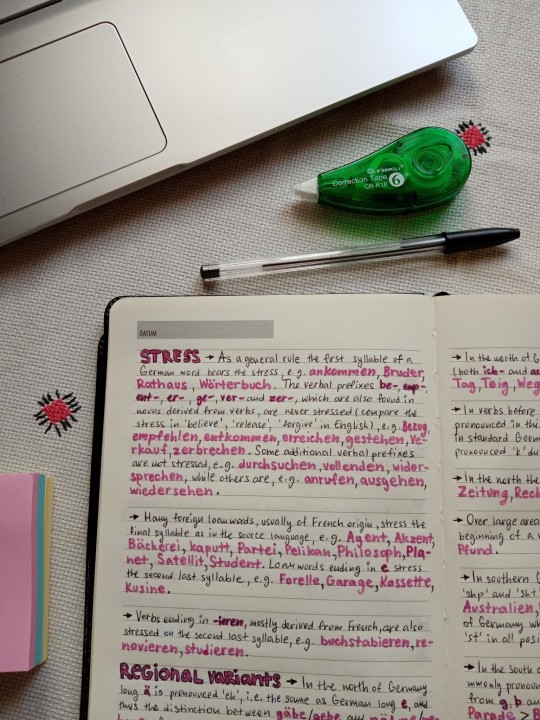 Correction Tape 6
DATUM
STRESS → As a general rule the first syllable of a
German word bears the stress, e.g. ankommen, Bruder,
Rathaus, Wörterbuch. The verbal prefixes be-, emp-,
ent-, er-, ge-, ver- and zer-, which are also found in
nouns derived from verbs, are never stressed (compare the
stress in 'believe', 'release', 'forgive' in English), e.g. Bezug,
empfehlen, entkommen, erreichen, gestehen, Ve-
rkauf, zerbrechen. Some additional verbal prefixes
are not stressed, e.g. durchsuchen, vollenden, wider-
sprechen, while others are, e.g. anrufen, ausgehen,
wiedersehen.
→ Many foreign loanwords, usually of French origin, stress the
final syllable as in the source language, e.g. Agent, Akzent,
Bäckerei, kaputt, Partei, Pelikan, Philosoph, Pla-
net, Satellit, Student. Loanwords ending in e stress
the second last syllable, e.g. Forelle, Garage, Kassette,
Kusine.
→ Verbs ending in -ieren, mostly derived from French, are also
stressed on the second last syllable, e.g. buchstabieren, re-
novieren, studieren.
REGIONAL VARIANTS → In the north of Germany
long ä is pronounced 'eh', i.e. the same as German long e, and
thus the distinction between gäbe/gebe and
→ In the north of G
(both ich- and
Tag, Teig, Weg
→ In verbs before
pronounced in the
in standard Germ
pronounced 'k' du
→ In the north the
Zeitung, Rech
→ Over large area
beginning of a w
Pfund.
→ In southern G
'shp' and 'sht
Australien,
of Germany wh
'st' in all posi
→ In the south o
mmonly pronoun
from g, b an
Parade > B